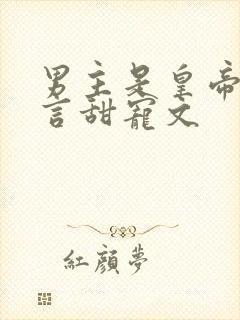 男主是皇帝
言甜寵文
紅顏夢